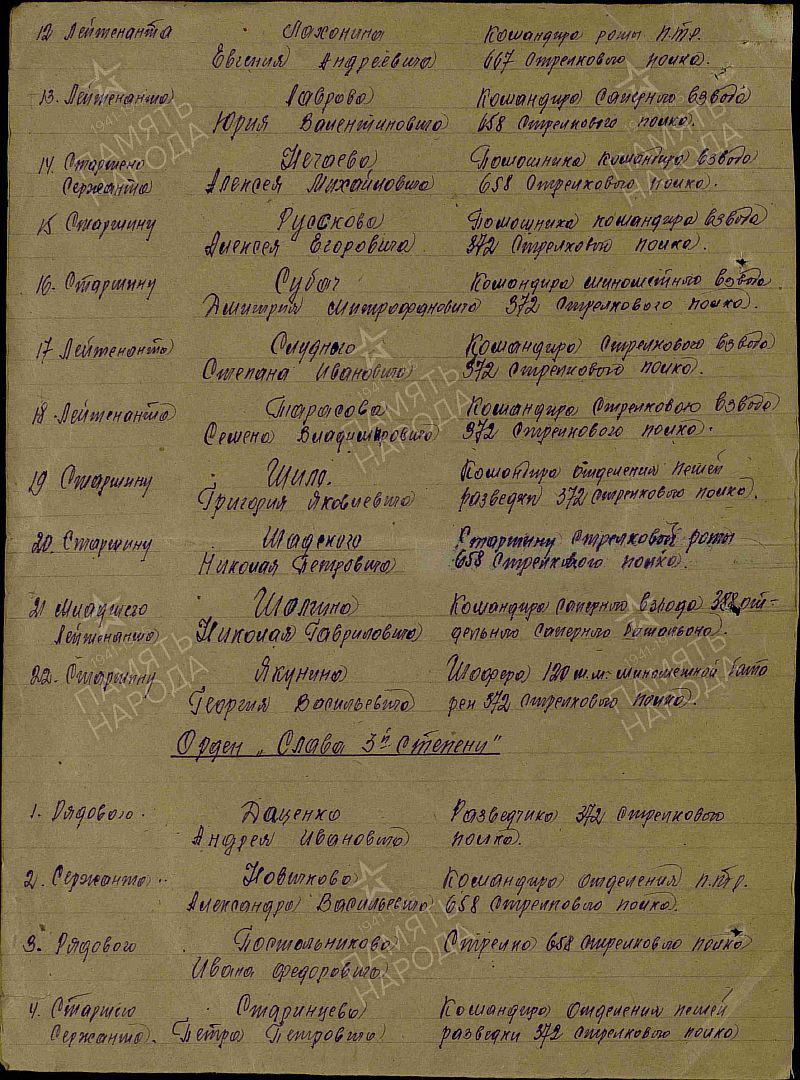 12 Лейтенанта Лахонина Командира роты п.т.р.
Евгения Андреевича 667 Стрелкового полка.
13. Лейтенанта Лаврова Командира саперного взвода
Юрия Валентиновича 658 Стрелкового полка.
14. Старшего Нечаева Помошника командира взвода
Сержанта Алексея Михайловича 658 Стрелкового полка.
15 Старшину Русскова Помошника командира взвода
Алексея Егоровича 372 Стрелкового полка.
16. Старшину Субач Командира минометного взвода
Дмитрия Митрофановича 372 Стрелкового полка.
17 Лейтенанта Слудного Командира Стрелкового взвода
Степана Ивановича 372 Стрелкового полка.
18. Лейтенанта Тарасова Командира Стрелкового взвода
Семена Владимировича 372 Стрелкового полка.
19 Старшину Шило. Командира отделения пешей
Григория Яковлевича разведки 372 Стрелкового полка.
20. Старшину Шадского Старшину Стрелковой роты
Николая Петровича 658 Стрелкового полка.
21 Младшего Шалгина Командира саперного взвода 388 от-
Лейтенанта Николая Гавриловича дельного Саперного батальона.
22. Старшину Якунина Шофера 120 м.м. минометной бата
Георгия Васильевича реи 372 Стрелкового полка.
Орден „Слава 3й Степени"
1. Рядового Даценко Разведчика 372 Стрелкового
Андрея Ивановича полка.
2. Сержанта Новичкова Командира отделения п.т.р.
Александра Васильевича 658 Стрелкового полка.
3. Рядового Постольникова Стрелка 658 Стрелкового полка
Ивана Федоровича
4. Старшего Старинцева Командира Отделения пешей
Сержанта. Петра Петровича разведки 372 Стрелкового полка
ПАМЯТЬ
НАРОДА